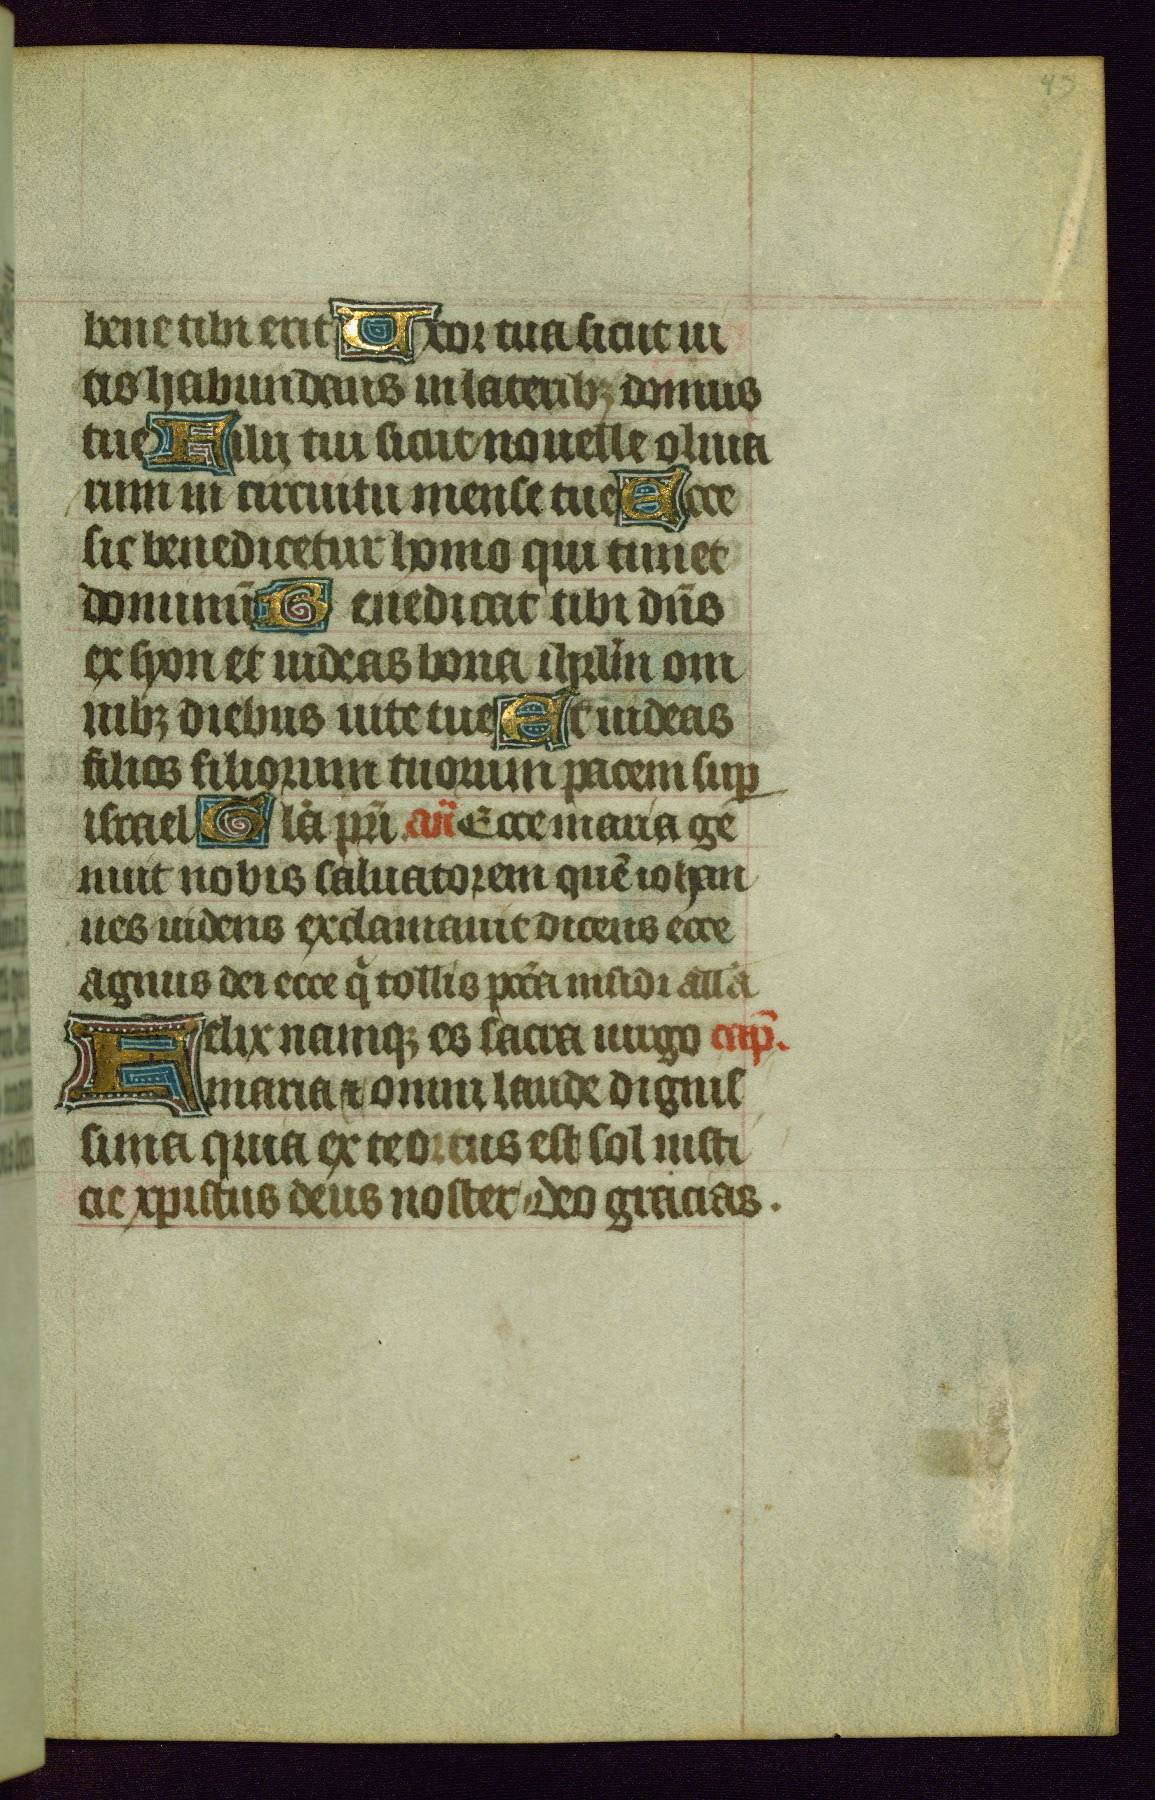 bene tibi erit Uxor tua sicut ui
tis habundans in laterib; domus
tue Filij tui sicut nouelle oliua
rum in circuitu mense tue Ecce
sic benedicetur homo qui timet
dominū Benedicat tibi dn̄s
ex syon et uideas bona ihrl̄m om
nib; diebus uite tue Et uideas
filios filiorum tuorum pacem sup
israel Gla pr̄i an̄ Ecce maria ge
nuit nobis saluatorem quē iohan
nes uidens exclamauit dicens ecce
agnus dei ecce q̄ tollis pctā mūdi all'a
Felix namq; es sacra uirgo cap̄.
maria ⁊ omni laude dignis
sima quia ex te ortus est sol iusti
cie xpistus deus noster Deo gracias.